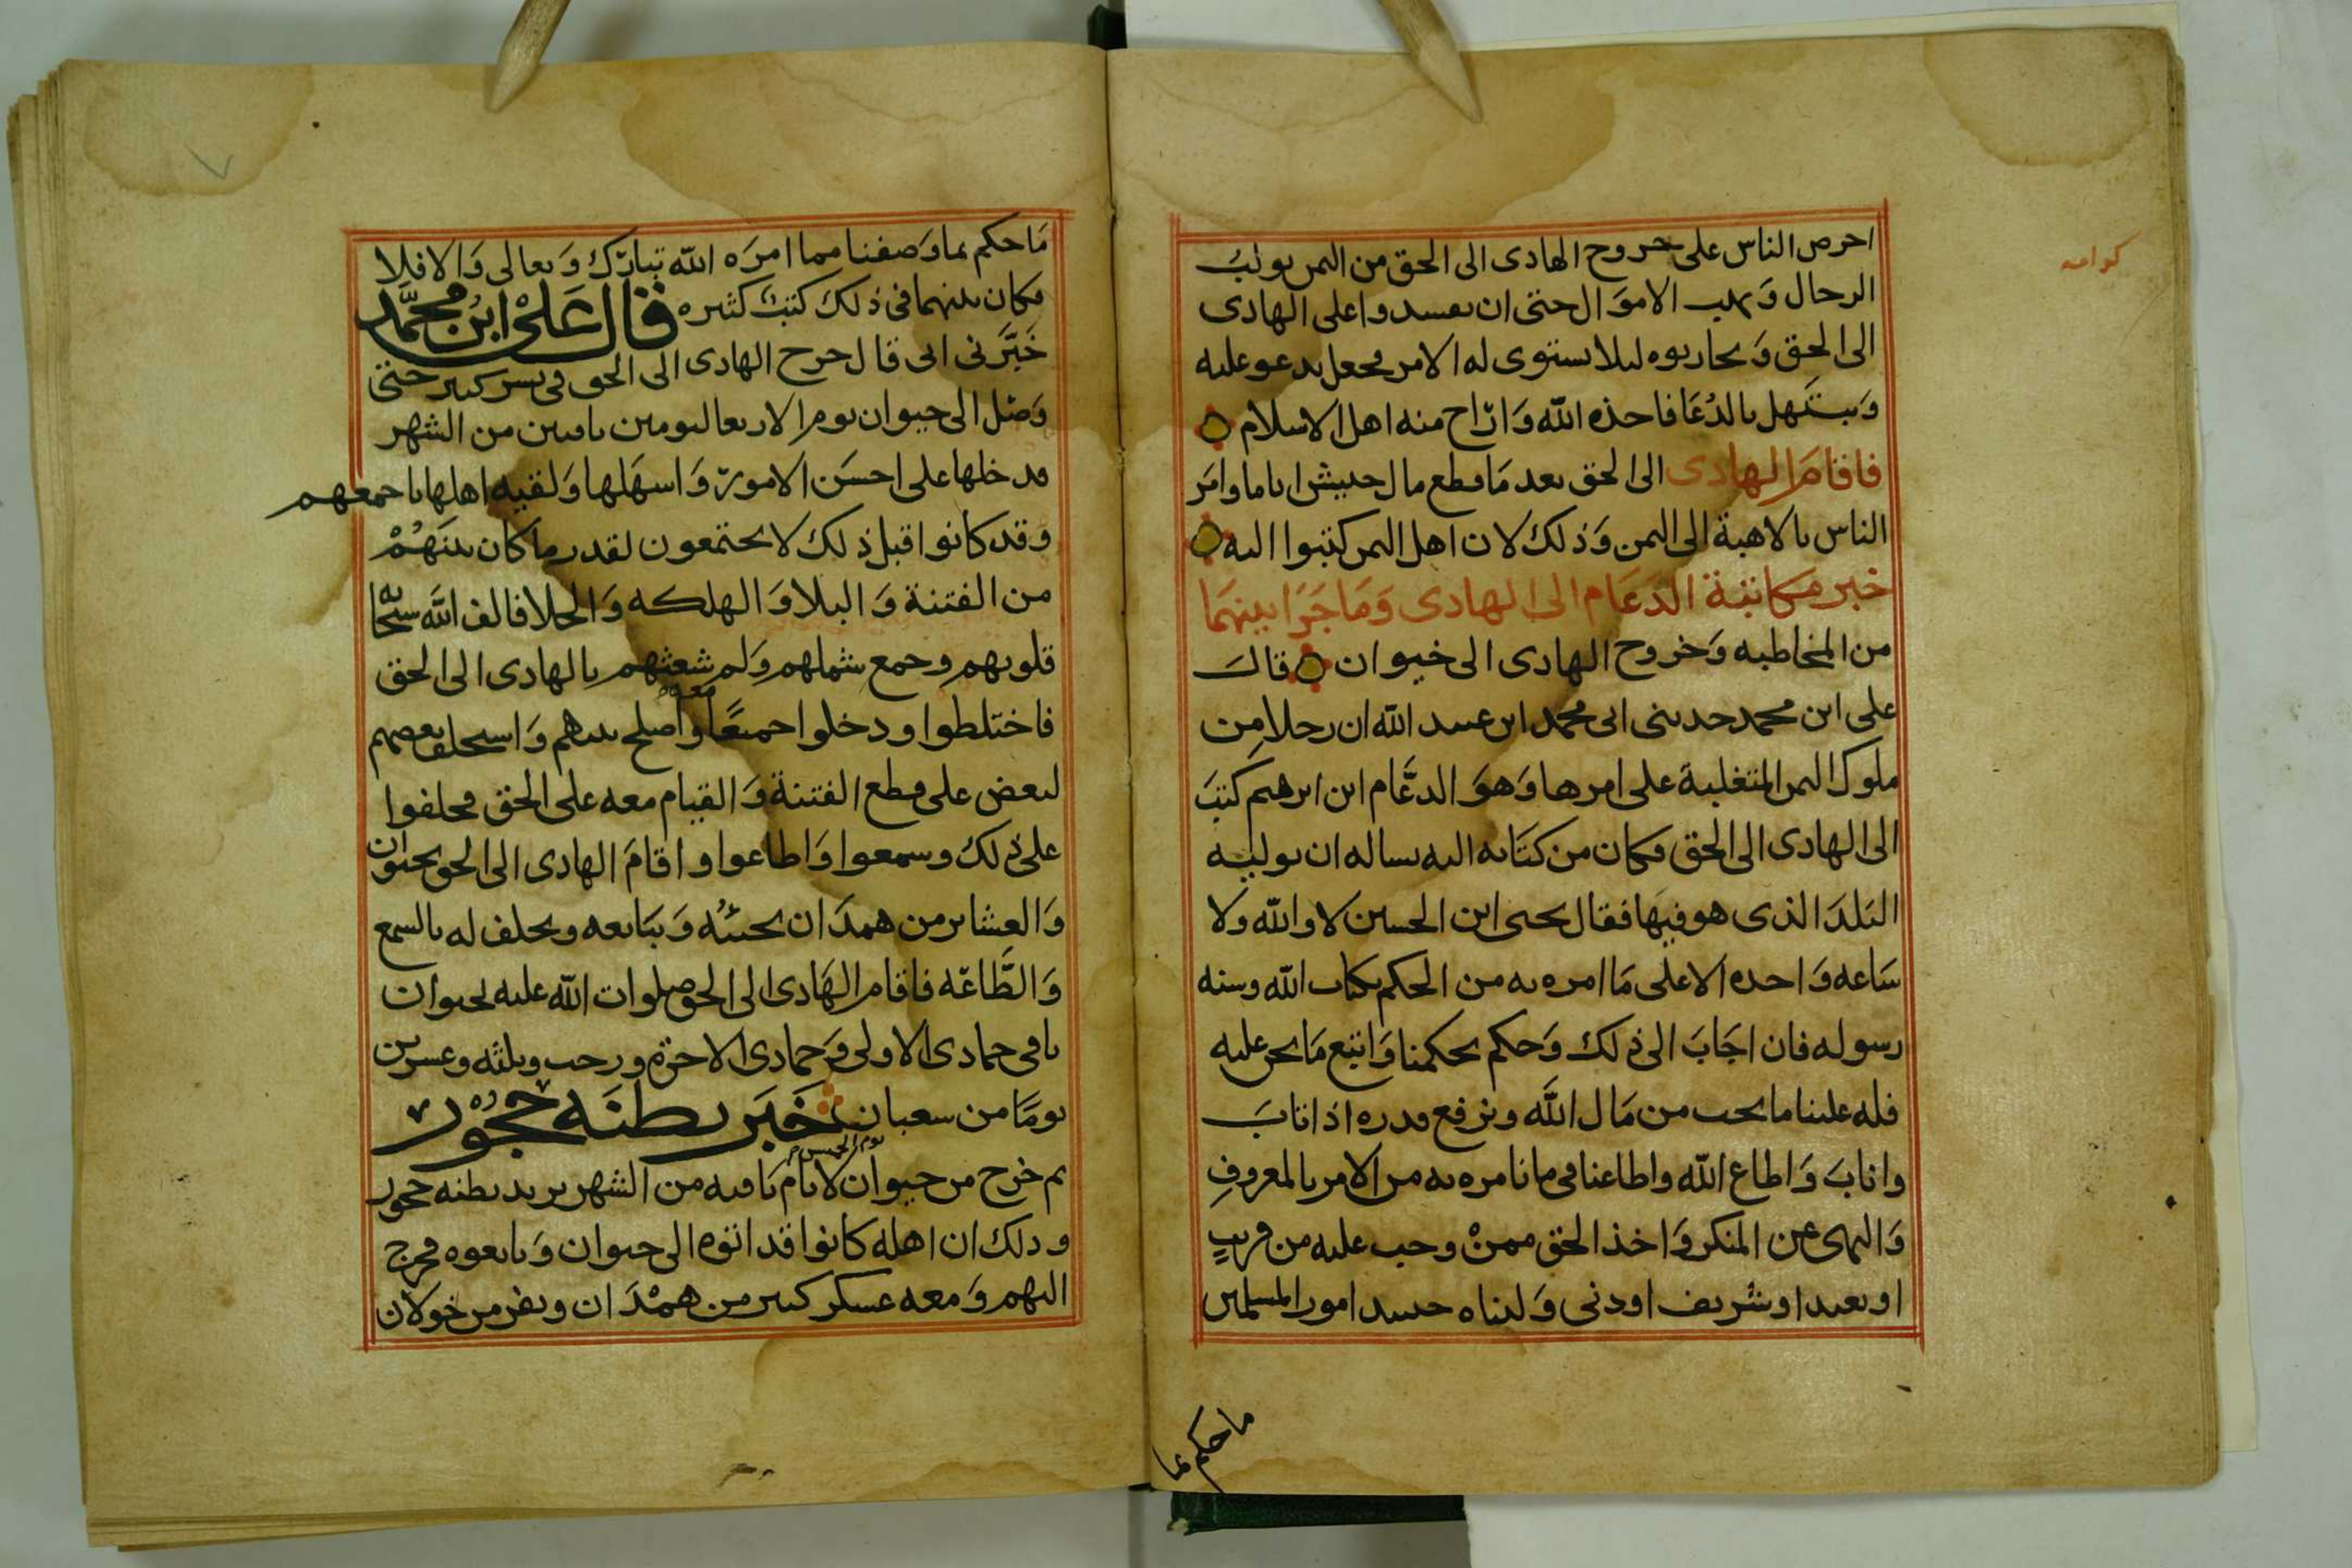 احرص الناس على خروج الهادى الى الحق من اليمن يولب
الرجال ويهب الاموال حتى ان يفسدوا على الهادى
الى الحق وَيحاربوه ليلا يستوى له الامر فجعل يدعو عليه
وَيبتهل بالدُعَا فاخذه الله وَارَاح منه اهل الاسلام
فاقامَ الهادى الى الحق بعد مَا قطع مال حنيش اياما وامَر
الناس بالاهبة الى اليمن وَذلك لان اهل اليمن كتبوا اليه
خبر مكاتبة الدَعَام الى الهادى وَمَا جَرَا بينهمَا
من المخاطبه وَخروج الهادى الى خيوان قالَ
على ابن محمد حدثنى ابى محمد ابن عبيد الله ان رجلا مِن
ملوك اليمن المتغلبة على امرها وَهوَ الدعَّام ابن ابرهيم كتبَ
الى الهادى الى الحق فكان من كتَابه اليه يساله ان يوليه
البَلدَ الذى هو فيهَا فقال يحيى ابن الحسين لا والله ولا
سَاعه وَاحده الا على مَا امره به من الحكم بكتاب الله وسنه
رسوله فان اجَابَ الى ذلك وَحكم بحكمنا وَاتبع مَا نحن عليه
فله علينا ما يجب من مَال الله ونرفع قدره اذا تابَ
وانابَ وَاطاع الله واطاعنا فى ما نامره به من الامر بالمعروفِ
وَالنهى عن المنكر وَاخذ الحق ممنْ وجب عليه من قريبٍ
او بعيد او شريف او دنى وَلّيناه حينيد امور المسلمين
ما حكم بما
كرامه
مَا حكم بما وَصفنا مما امرَه الله تبارَك وَتعالى وَالا فلا
فكان بينهما فى ذلك كتبٌ كثيره قال عَلىْ ابْن محمَّد
خَبَّرنى ابى قال خرج الهادى الى الحق فى بشر كثير حتى
وَصَل الى خيوان يوم الاربعا ليومين باقيين من الشهر
فدخلها على احسَن الامورِ وَاسهَلها وَلقيه اهلها باجمعهم
وقد كانوا قبل ذلك لا يجتمعون لقدر ما كان بينَهُمْ
من الفتنة وَالبلا وَالهلكه وَالجلا فالف الله سبحانه
قلوبهم وجمع شملهم وَلم شعثهم بالهادى الى الحق
فاختلطوا ودخلوا جميعًا معه واصلح بينهم وَاستحلف بعضهم
لبعض على قطع الفتنة وَالقيام معه على الحق فحلفوا
على ذلك وسمعوا وَاطاعوا واقامَ الهادى الى الحق بخيوان
وَالعشاير من همدَان يجئُه وَتبَايعه ويحلف له بالسمع
وَالطَّاعَه فاقام الهَادى الى الحق صلوات الله عليه بخيوان
باقى جمادى الاولى وَجمادى الاخرة ورجب وثلثه وعشرين
يومًا من شعبان خَبَر بطنَه حجُوْر
ثم خرج من خيوان يوم الخميس لايام بَاقيه من الشهر يريد بطنه حجور
وذلك ان اهله كانوا قد اتوه الى خيوان وَبايعوه فخرج
اليهم وَمعه عسكر كثير من همْدَان ونفر من خولان